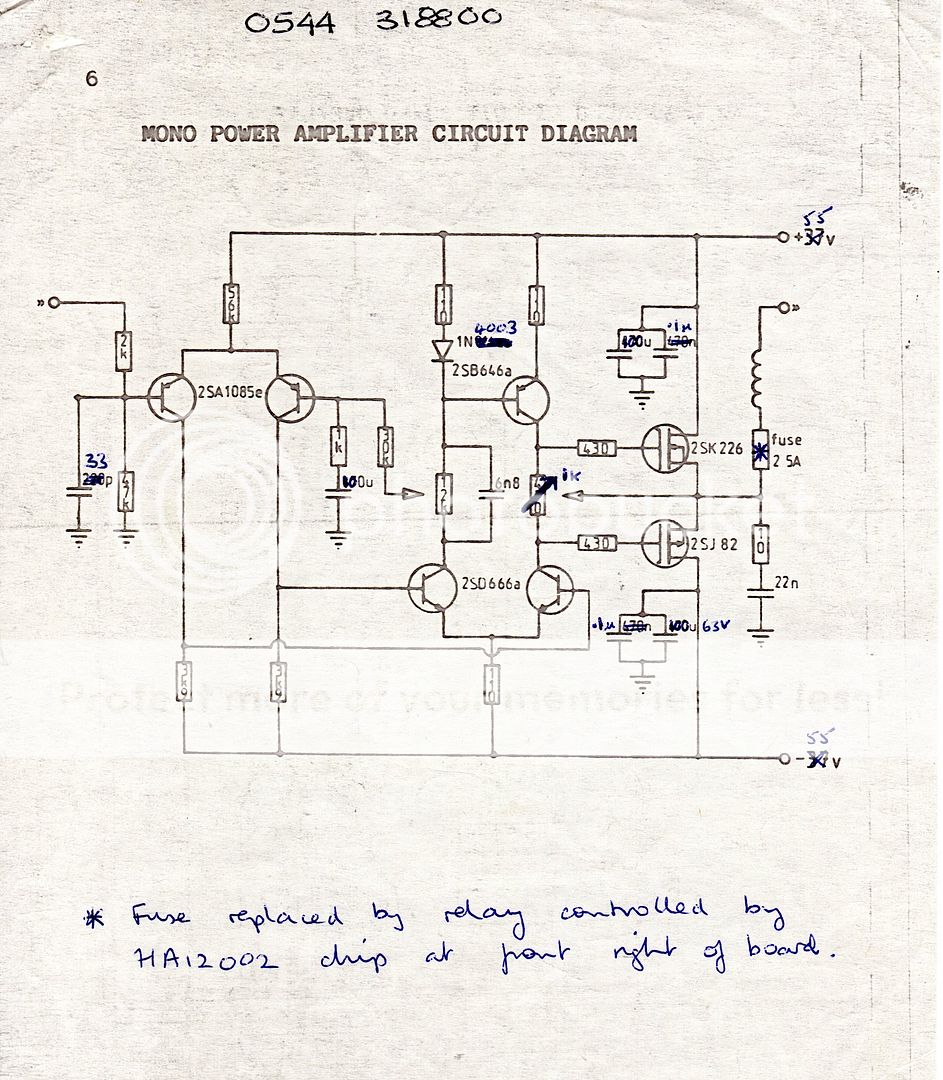 0544 318800
6
MONO POWER AMPLIFIER CIRCUIT DIAGRAM
55
+37v
56k
110
110
4003
1N
2SB646a
.1u
100u
470n
2k
2SA1085e
1k
30k
430
2SK226
fuse
2 5A
33
p
47k
100u
12k
6n8
1k
430
2SJ82
10
22n
2SD666a
.1u
470n
100u
63V
3k9
3k9
110
Protect more of your memories for less!
55
-37v
* Fuse replaced by relay controlled by
HA12002 chip at front right of board.